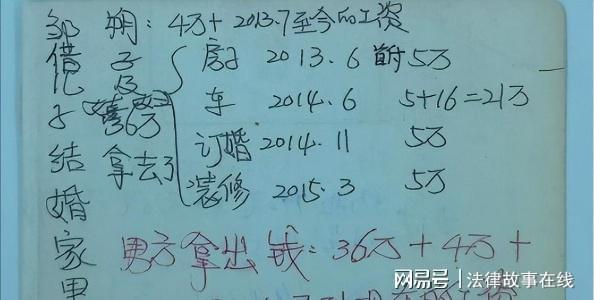 邹 朔：4万+2013.7至今的工资
借儿子结婚家里
36万
拿去了
房 2013.6 首付5万
车 2014.6 5+16=21万
订婚 2014.11 5万
装修 2015.3 5万
男方拿出钱：36万+4万+
网易号 | 法律故事在线